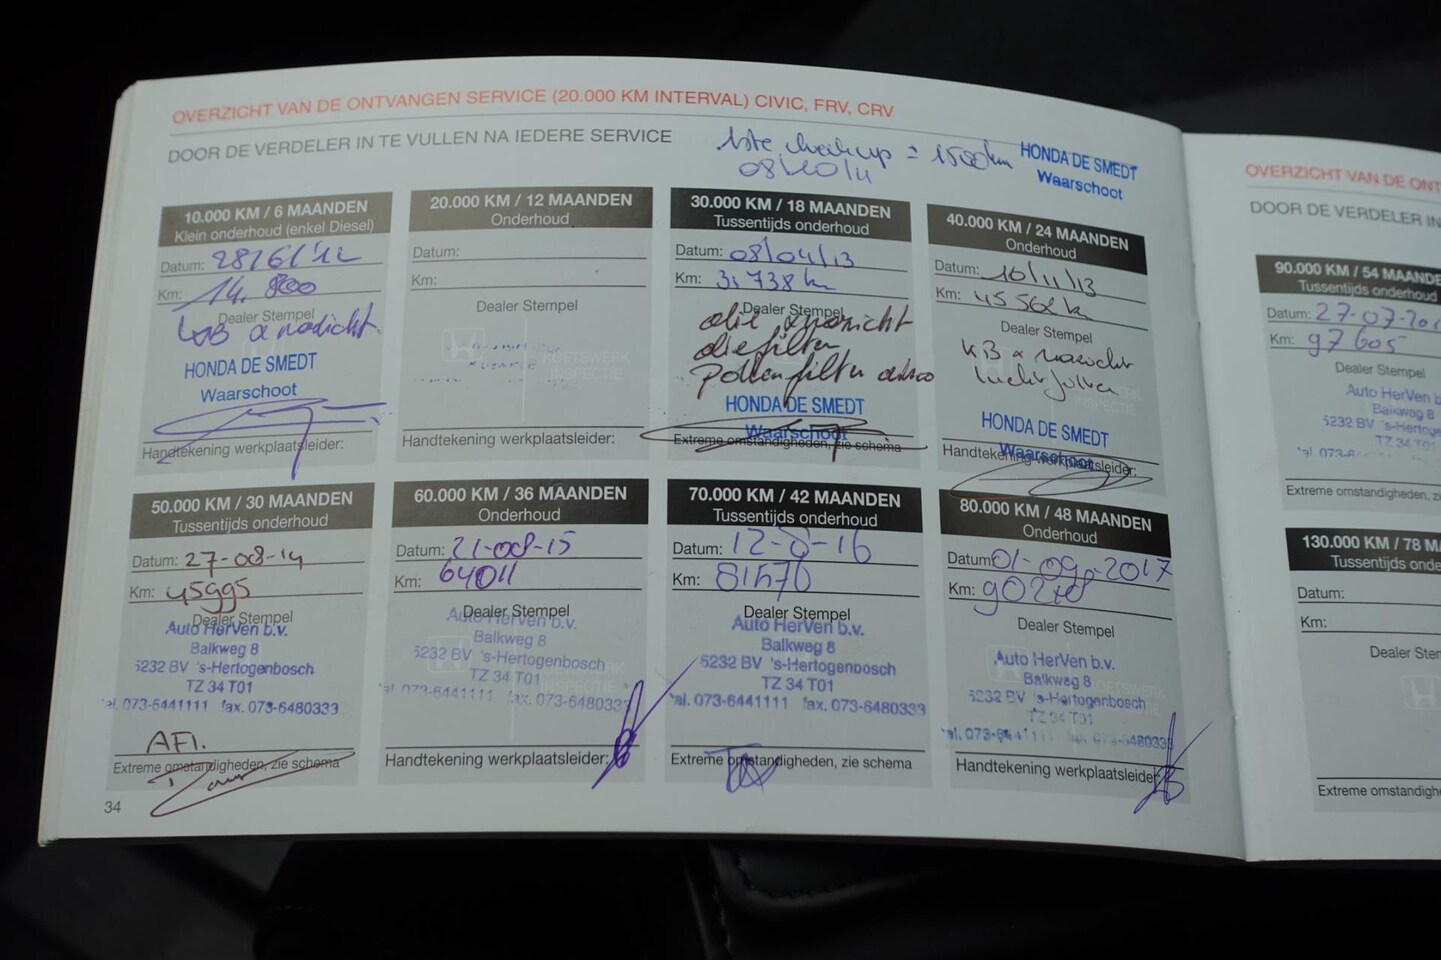 OVERZICHT VAN DE ONTVANGEN SERVICE (20.000 KM INTERVAL) CIVIC, FRV, CRV
DOOR DE VERDELER IN TE VULLEN NA IEDERE SERVICE
1ste checkup = 1500 km
08/10/11
HONDA DE SMEDT
Waarschoot
10.000 KM / 6 MAANDEN
Klein onderhoud (enkel Diesel)
Datum: 28/6/'12
Km: 14.800
Dealer Stempel
HONDA DE SMEDT
Waarschoot
Handtekening werkplaatsleider:
20.000 KM / 12 MAANDEN
Onderhoud
Datum:
Km:
Dealer Stempel
KOETSWERK
INSPECTIE
Handtekening werkplaatsleider:
30.000 KM / 18 MAANDEN
Tussentijds onderhoud
Datum: 08/04/13
Km: 31738 km
Dealer Stempel
olie
oliefilter
pollenfilter
HONDA DE SMEDT
Waarschoot
Extreme omstandigheden, zie schema
40.000 KM / 24 MAANDEN
Onderhoud
Datum: 10/11/13
Km: 45562 km
Dealer Stempel
HONDA DE SMEDT
Waarschoot
Handtekening werkplaatsleider:
50.000 KM / 30 MAANDEN
Tussentijds onderhoud
Datum: 27-08-14
Km: 45995
Dealer Stempel
Auto HerVen b.v.
Balkweg 8
5232 BV 's-Hertogenbosch
TZ 34 T01
tel. 073-6441111 fax. 073-6480333
AFL.
Extreme omstandigheden, zie schema
60.000 KM / 36 MAANDEN
Onderhoud
Datum: 21-08-15
Km: 64011
Dealer Stempel
Auto HerVen b.v.
Balkweg 8
5232 BV 's-Hertogenbosch
TZ 34 T01
tel. 073-6441111 fax. 073-6480333
Handtekening werkplaatsleider:
70.000 KM / 42 MAANDEN
Tussentijds onderhoud
Datum: 12-8-16
Km: 81576
Dealer Stempel
Auto HerVen b.v.
Balkweg 8
5232 BV 's-Hertogenbosch
TZ 34 T01
tel. 073-6441111 fax. 073-6480333
Extreme omstandigheden, zie schema
80.000 KM / 48 MAANDEN
Onderhoud
Datum: 01-09-2017
Km:
Dealer Stempel
Auto HerVen b.v.
Balkweg 8
5232 BV 's-Hertogenbosch
TZ 34 T01
tel. 073-6441111 fax. 073-6480333
Handtekening werkplaatsleider
34
OVERZICHT VAN DE ONT
DOOR DE VERDELER IN
90.000 KM / 54 MAANDE
Tussentijds onderhoud
Datum: 27-07-20
Km: 97605
Dealer Stempel
Auto HerVen b
Balkweg 8
5232 BV 's-Hertoge
TZ 34 T01
tel. 073-6
Extreme omstandigheden, zie
130.000 KM / 78 M
Tussentijds onde
Datum:
Km:
Dealer Stem
Extreme omstandigh